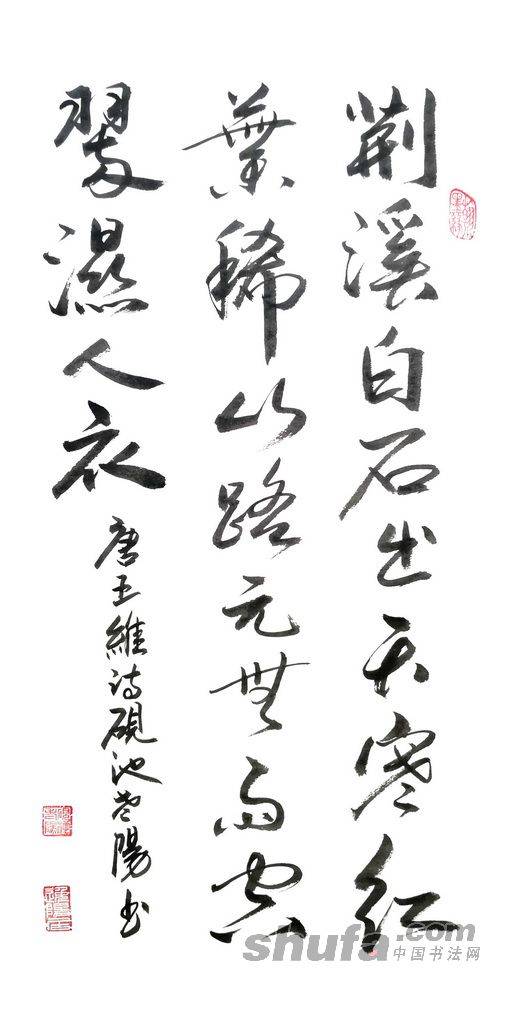 荆溪白石出天寒红
葉稀山路元無雨空
翠濕人衣
唐王維诗硯池老陽书
shufa.com
中国书法网